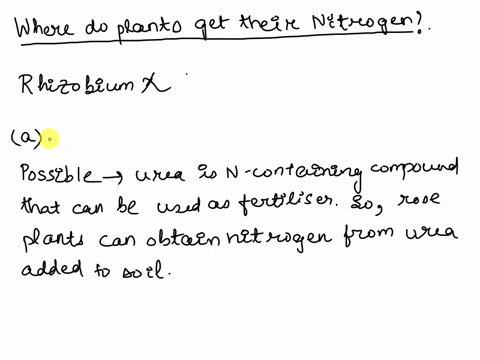 Where do plants get their Nitrogen?.
Rhizobium X
(a)
Possible → urea is N-containing compound
that can be used as fertiliser. So, rose
plants can obtain nitrogen from urea
added to soil.